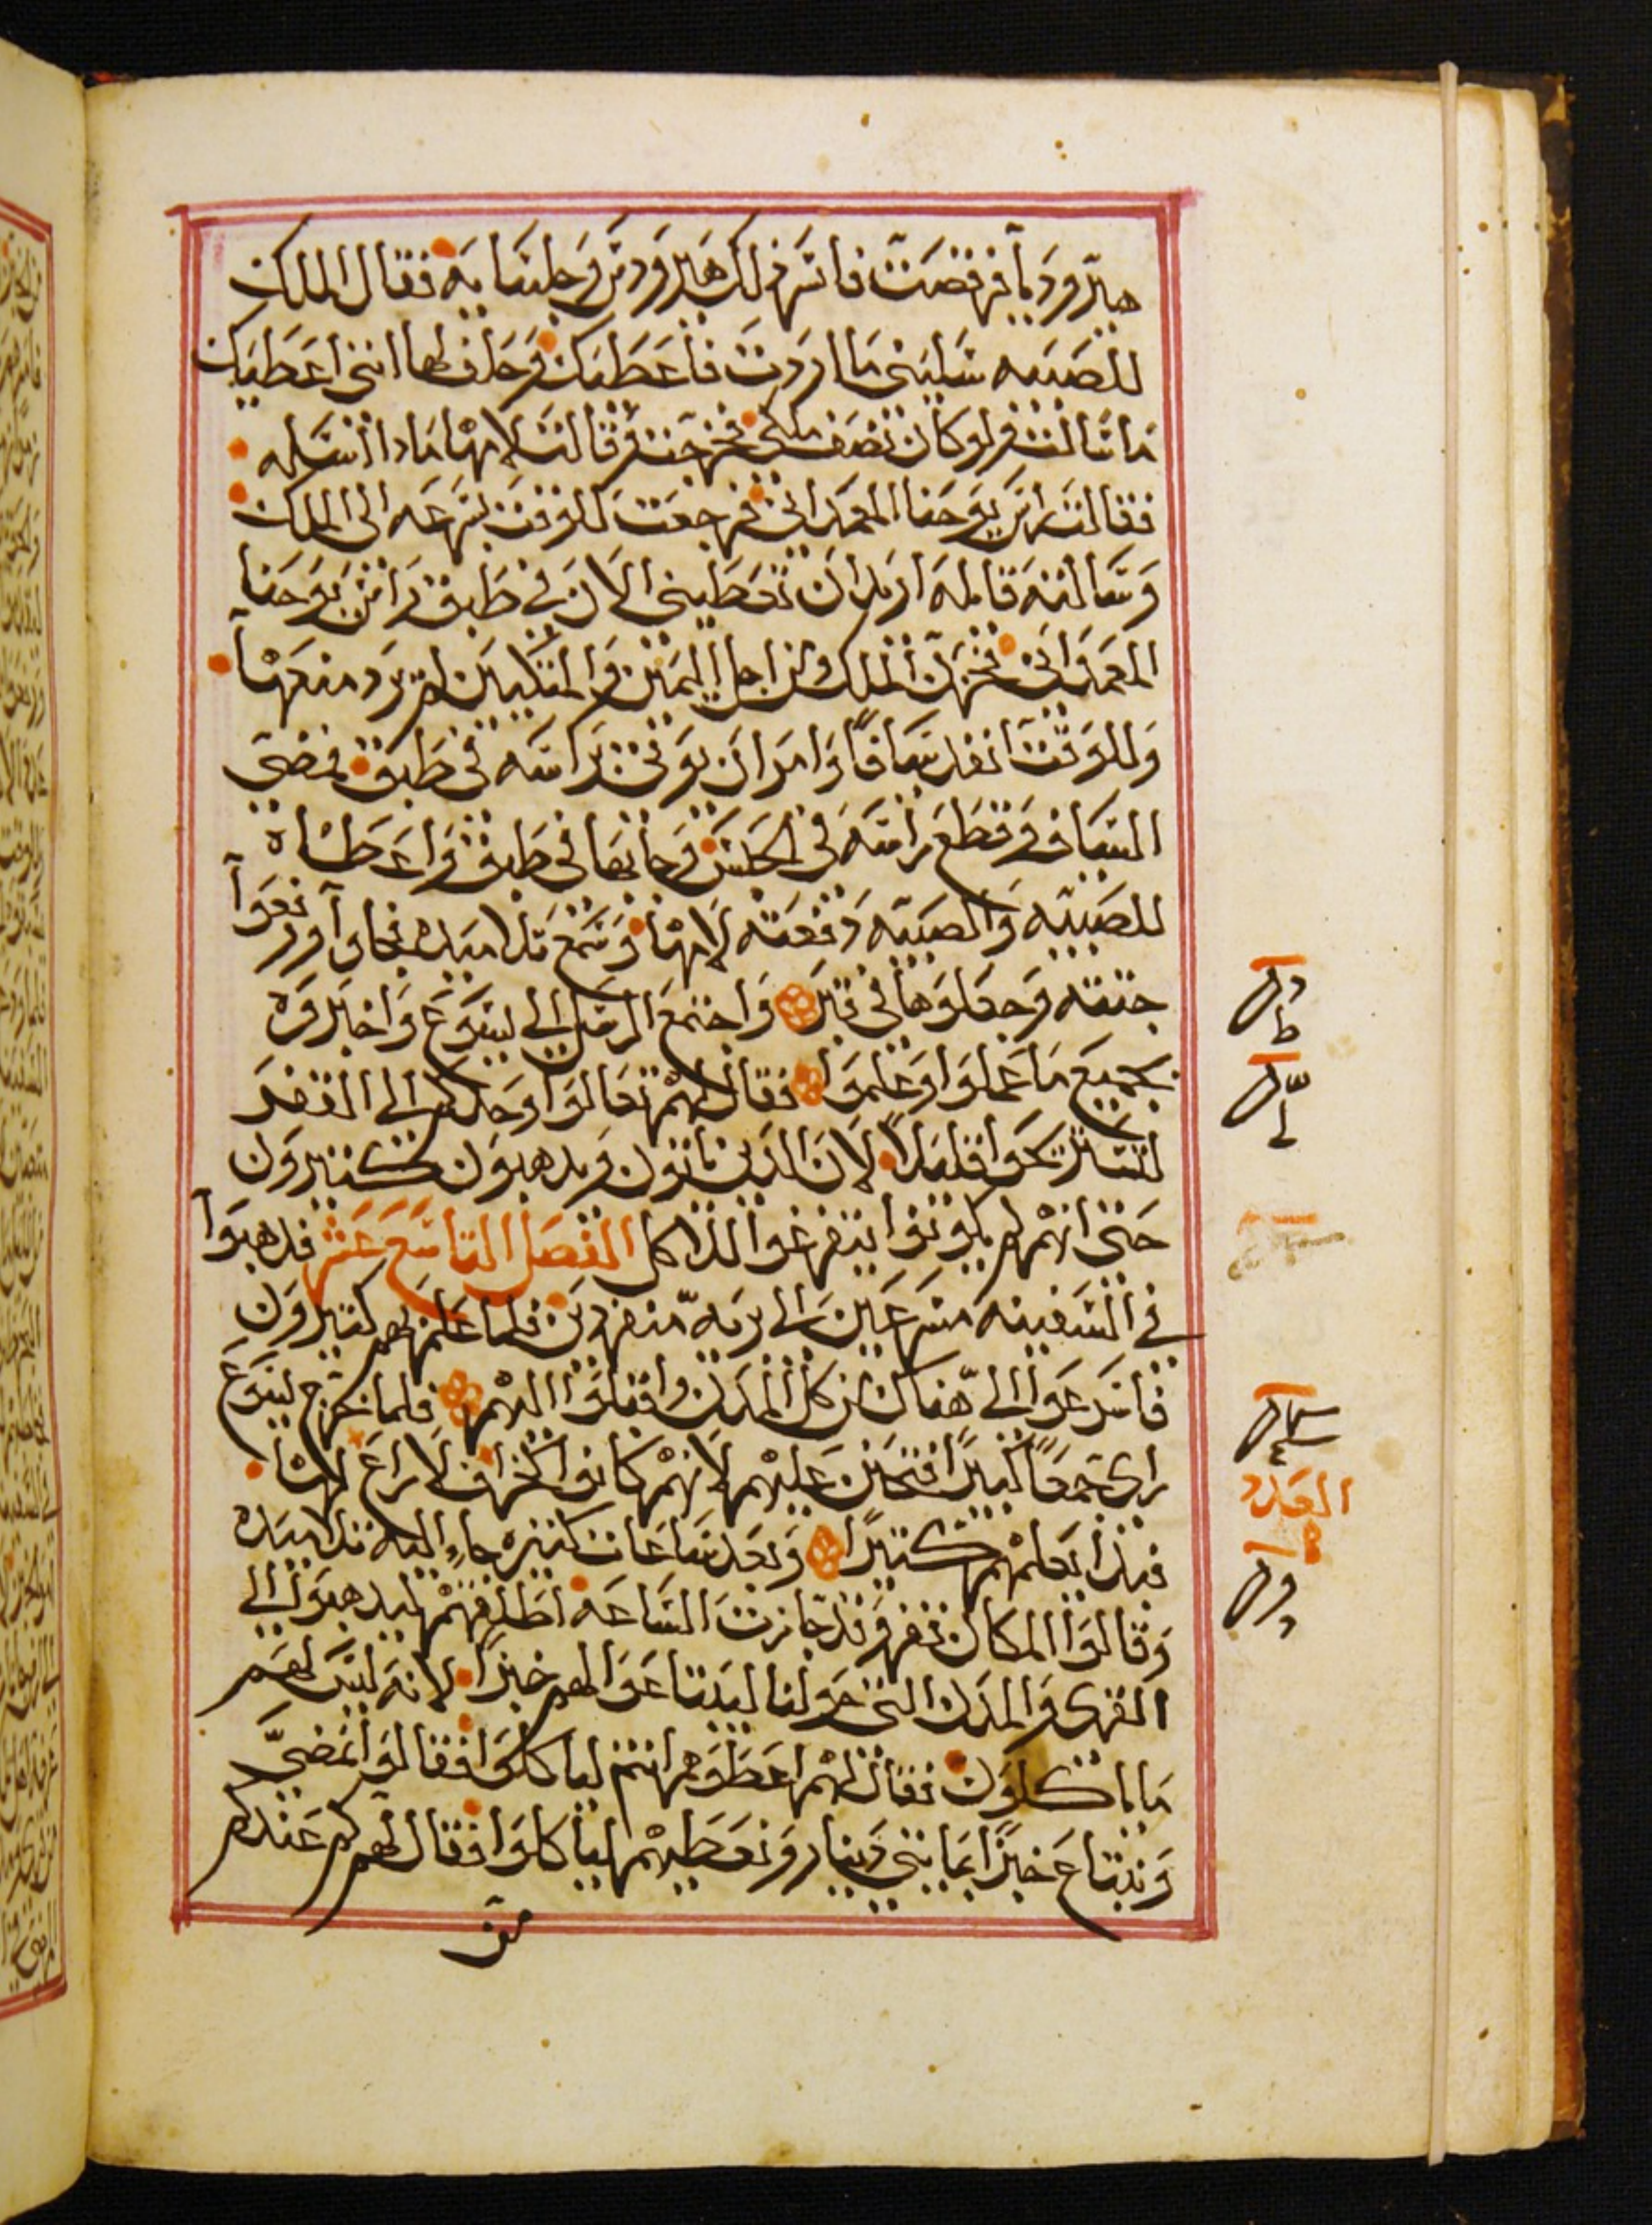 هيرودياَ فرقصت فاسر ذلك هيرودس وجلسايه فقال الملك
للصبيه سليني ما اردت فاعطيك وحلف لها انني اعطيك
ما سالت ولو كان نصف ملكي فخرجت وقالت لامها مادا اسله
فقالت راس يوحنا المعمداني فرجعت للوقت بسرعه الى الملك
وسالته قايله اريد ان تعطيني الان في طبق راس يوحنا
المعمداني فحزن الملك ومن اجل اليمين والمتكيين لم يرد منعها
وللوقت انفد سيافاً وامر ان يوتى براسه في طبق فمضى
السياف وقطع راسه في الحبس وجا بها في طبق واعطاه
للصبيه والصبيه دفعته لامها وسمع تلاميده فجاوا ورفعوا
جثته وجعلوها في قبر واجتمع الرسل الي ليسوع واخبروه
بجميع ما عملوا وعلموا فقال لهم تعالوا وحدكم الى القفر
لتستريحوا قليلاً لان الدين ياتون ويدهبون كثيرون
حتى انهم لم يكونوا يتفرغوا للاكل الفصل التاسع عشر فدهبوا
في السفينه مسرعين الى بريه منفردين فلما علم بهم كثيرون
فاسرعوا الى هناك من كل المدن واقبلوا اليهم فلما خرج ليسوع
راى جمعاً كبيراً فتحنن عليهم لانهم كانوا كالخراف لا راع لها
فبدا يعلمهم كثيراً وبعد ساعات كثيره جاء اليه تلاميده
وقالوا المكان قفر وقد جازت الساعه اطلقهم ليدهبوا الى
القرى والمدن التي حولنا ليبتاعوا لهم خبزاً لانه ليس لهم
ما ياكلون فقال لهم اعطوهم انتم لياكلوا فقالوا نمضي
ونبتاع خبزاً بمايتي دينار ونعطيهم لياكلوا فقال لهم كم عندكم
من
العدد